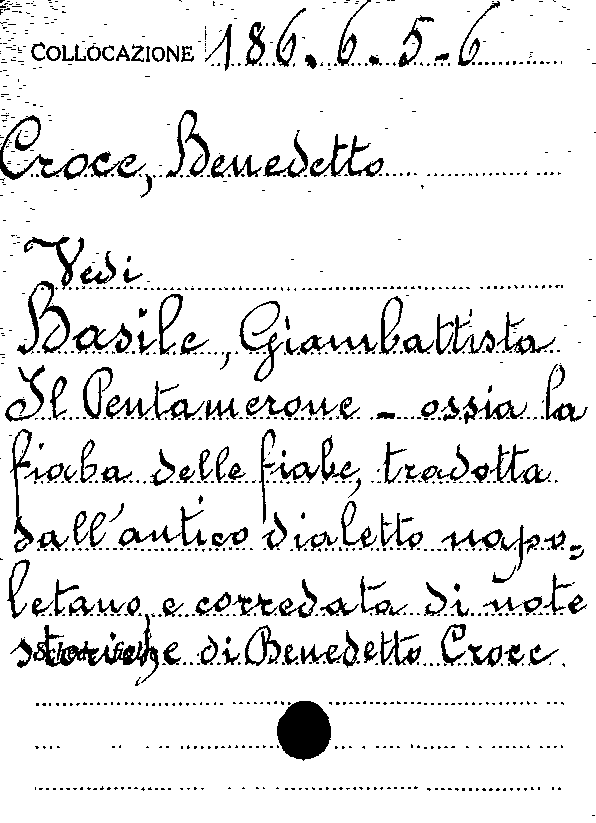 COLLOCAZIONE 186.6.5-6
Croce, Benedetto
Vedi
Basile, Giambattista
Il Pentamerone - ossia la
fiaba delle fiabe, tradotta
dall'antico dialetto napo=
letano, e corredata di note
storiche di Benedetto Croce